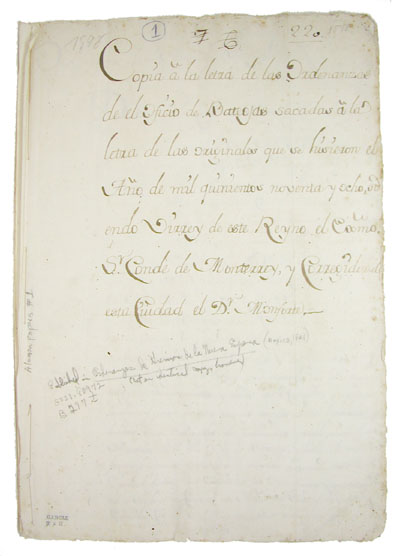 1598
1
7
220
Copia à la letra de las Ordenanzas
de el Oficio de Batiojas sacadas à la
letra de las originales que se hisieron el
Año de mil quinientos noventa y ocho, si
endo Virrey de este Reyno el Exmo.
Sr. Conde de Monterrey, y Corregidor de
esta Ciudad el Dr. Monforte
Ordenanzas de Gremios de la Nueva España
Alvaro papers #1
GARCIA